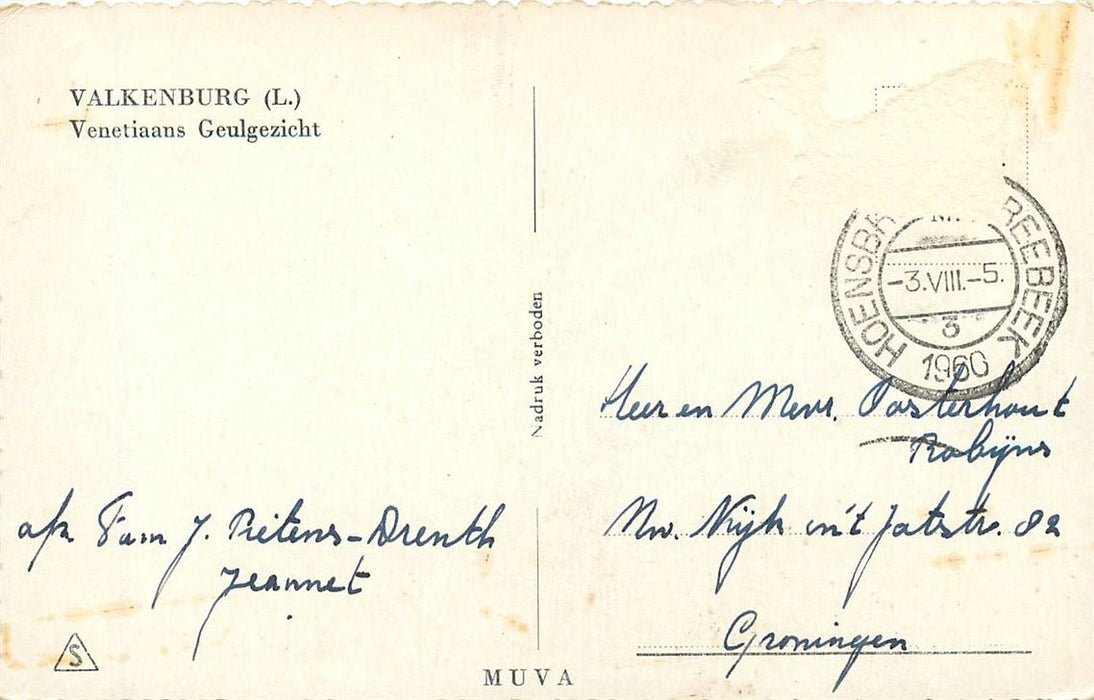 VALKENBURG (L.)
Venetiaans Geulgezicht
Nadruk verboden
HOENSBR REEBEEK
-3.VIII.-5.
3
1960
Heer en Mevr. Oosterhout
Robijns
Nw. Kijk in 't Jatstr. 82
Groningen
afz Fam J. Pietens-Drenth
Jeannet
S
MUVA